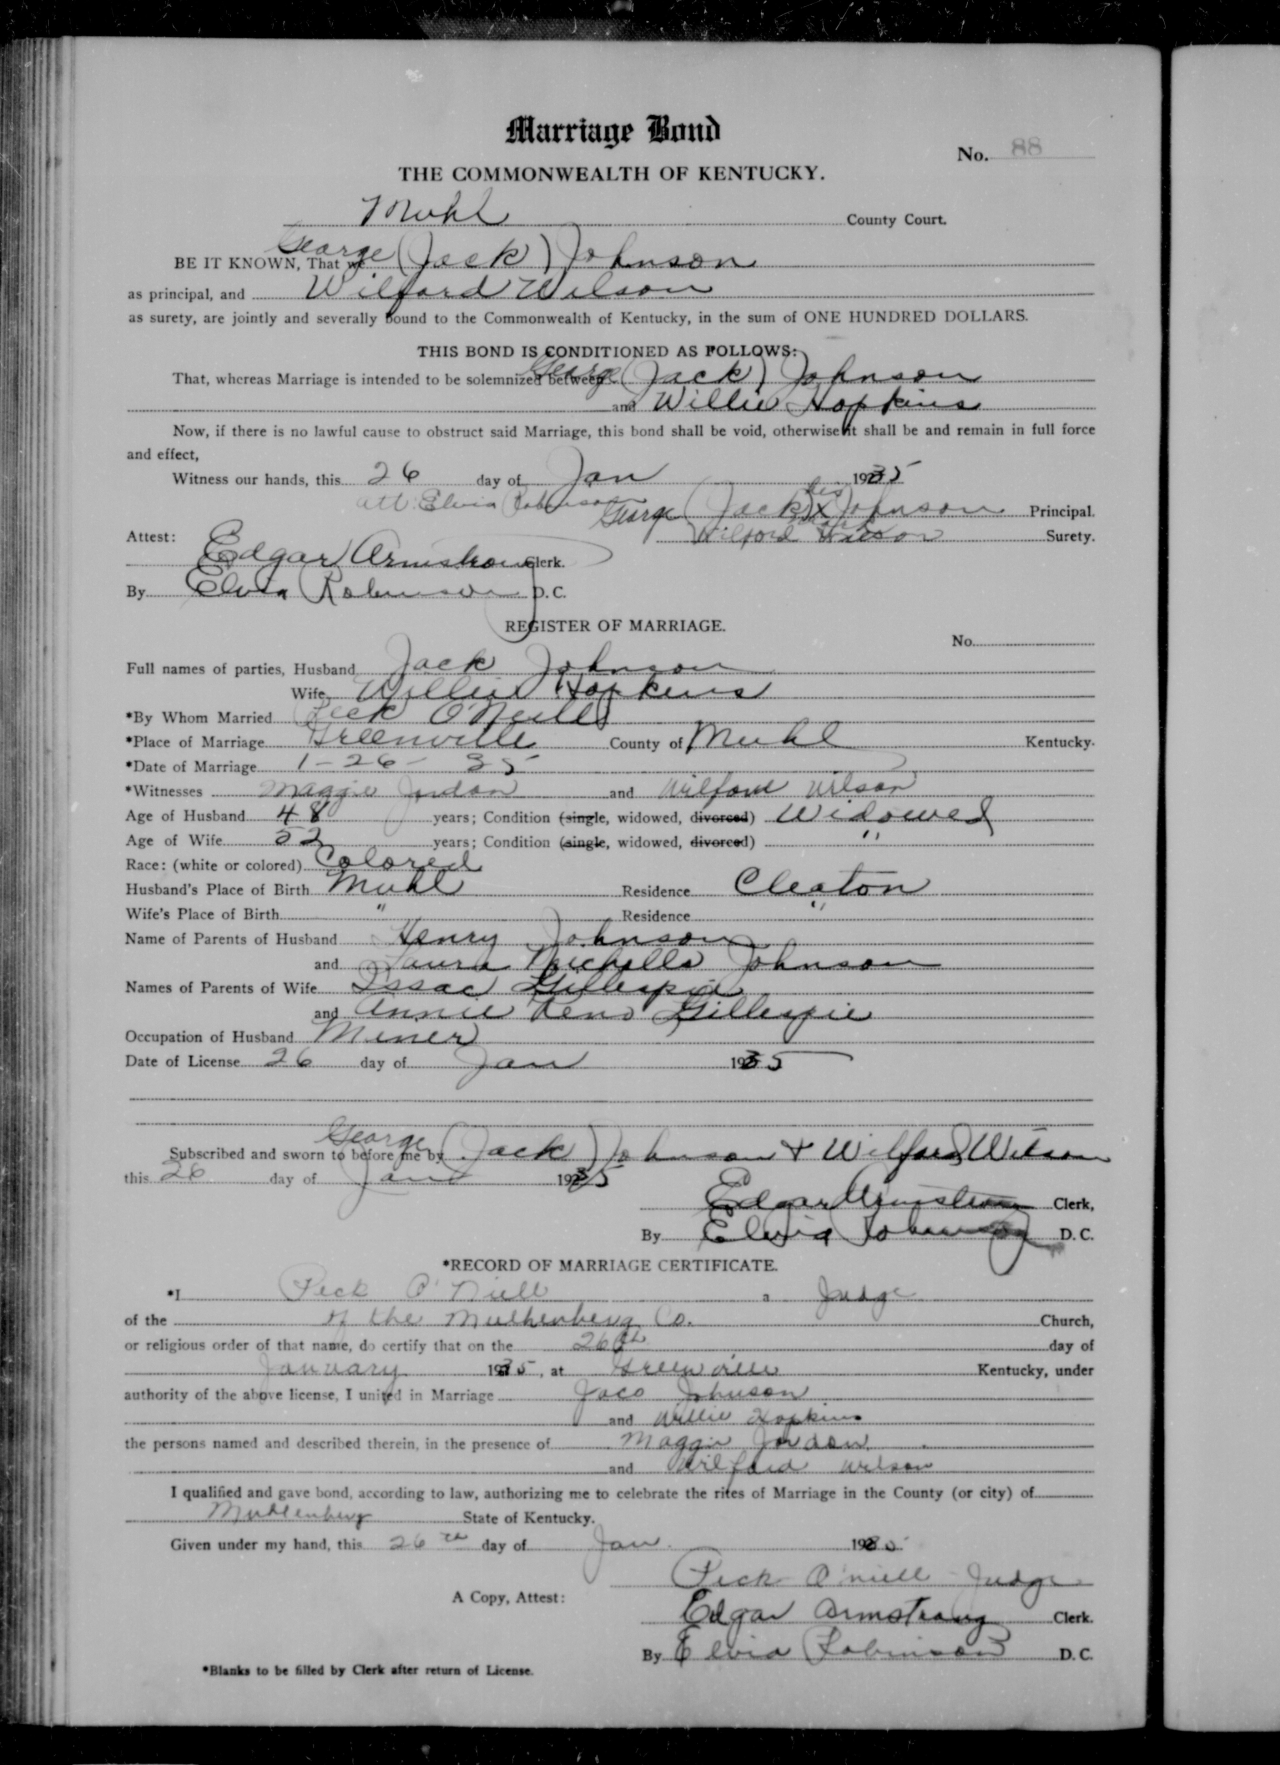 Marriage Bond
No. 88
THE COMMONWEALTH OF KENTUCKY.
Muhl County Court.
BE IT KNOWN, That we George (Jack) Johnson
as principal, and Wilford Wilson
as surety, are jointly and severally bound to the Commonwealth of Kentucky, in the sum of ONE HUNDRED DOLLARS.
THIS BOND IS CONDITIONED AS FOLLOWS:
That, whereas Marriage is intended to be solemnized between George (Jack) Johnson
and Willie Hopkins
Now, if there is no lawful cause to obstruct said Marriage, this bond shall be void, otherwise it shall be and remain in full force
and effect,
Witness our hands, this 26 day of Jan 1935
att: Elvia Robinson George (Jack) his X mark Johnson Principal.
Wilford Watson Surety.
Attest: Edgar Armstrong Clerk.
By Elvia Robinson D. C.
REGISTER OF MARRIAGE.
No.
Full names of parties, Husband Jack Johnson
Wife Willie Hopkins
*By Whom Married Peck O'Neill
*Place of Marriage Greenville County of Muhl Kentucky.
*Date of Marriage 1-26-35
*Witnesses Maggie Jordan and Wilford Wilson
Age of Husband 48 years; Condition (single, widowed, divorced) Widowed
Age of Wife 52 years; Condition (single, widowed, divorced) "
Race: (white or colored) Colored
Husband's Place of Birth Muhl Residence Cleaton
Wife's Place of Birth " Residence "
Name of Parents of Husband Henry Johnson
and Laura Nicholls Johnson
Names of Parents of Wife Issac Gillespie
and Annie Reno Gillespie
Occupation of Husband Miner
Date of License 26 day of Jan 1935
Subscribed and sworn to before me by George (Jack) Johnson & Wilford Wilson
this 26 day of Jan 1935
Edgar Armstrong Clerk,
By Elvia Robinson D. C.
*RECORD OF MARRIAGE CERTIFICATE.
*I Peck O'Niell a Judge
of the of the Mulhenberg Co. Church,
or religious order of that name, do certify that on the 26th day of
January 1935, at Greenville Kentucky, under
authority of the above license, I united in Marriage Jaco Johnson
and Willie Hopkins
the persons named and described therein, in the presence of Maggie Jordon
and Wilford Wilson
I qualified and gave bond, according to law, authorizing me to celebrate the rites of Marriage in the County (or city) of
Muhlenberg State of Kentucky.
Given under my hand, this 26th day of Jan. 1935
Peck O'niell Judge
A Copy, Attest: Edgar Armstrong Clerk.
By Elvia Robinson D. C.
*Blanks to be filled by Clerk after return of License.